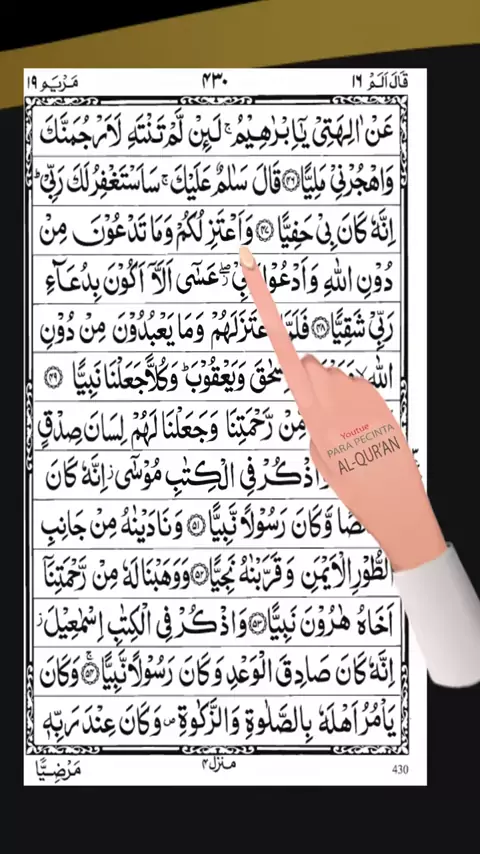 قَالَ اَلَمْ ١٦
٤٣٠
مَرْيَم ١٩
عَنْ اٰلِهَتِيْ يٰۤاِبْرٰهِيْمُ ۚ لَىِٕنْ لَّمْ تَنْتَهِ لَاَرْجُمَنَّكَ
وَاهْجُرْنِيْ مَلِيًّا ﴿٤٦﴾ قَالَ سَلٰمٌ عَلَيْكَ ۚ سَاَسْتَغْفِرُ لَكَ رَبِّيْ ؕ
اِنَّهٗ كَانَ بِيْ حَفِيًّا ﴿٤٧﴾ وَاَعْتَزِلُكُمْ وَمَا تَدْعُوْنَ مِنْ
دُوْنِ اللّٰهِ وَاَدْعُوْا ۖ عَسٰۤى اَلَّاۤ اَكُوْنَ بِدُعَآءِ
رَبِّيْ شَقِيًّا ﴿٤٨﴾ فَلَمَّا اعْتَزَلَهُمْ وَمَا يَعْبُدُوْنَ مِنْ دُوْنِ
اللّٰهِ ۙ وَيَعْقُوْبَ ؕ وَكُلًّا جَعَلْنَا نَبِيًّا ﴿٤٩﴾
مِّنْ رَّحْمَتِنَا وَجَعَلْنَا لَهُمْ لِسَانَ صِدْقٍ
وَاذْكُرْ فِي الْكِتٰبِ مُوْسٰۤى ؗ اِنَّهٗ كَانَ
وَّكَانَ رَسُوْلًا نَّبِيًّا ﴿٥١﴾ وَنَادَيْنٰهُ مِنْ جَانِبِ
الطُّوْرِ الْاَيْمَنِ وَقَرَّبْنٰهُ نَجِيًّا ﴿٥٢﴾ وَوَهَبْنَا لَهٗ مِنْ رَّحْمَتِنَاۤ
اَخَاهُ هٰرُوْنَ نَبِيًّا ﴿٥٣﴾ وَاذْكُرْ فِي الْكِتٰبِ اِسْمٰعِيْلَ ؗ
اِنَّهٗ كَانَ صَادِقَ الْوَعْدِ وَكَانَ رَسُوْلًا نَّبِيًّا ﴿٥٤﴾ ۚ وَكَانَ
يَاْمُرُ اَهْلَهٗ بِالصَّلٰوةِ وَالزَّكٰوةِ ۪ وَكَانَ عِنْدَ رَبِّهٖ
مَرْضِيًّا
منزل ٤
430
Youtue
PARA PECINTA
AL-QUR'AN